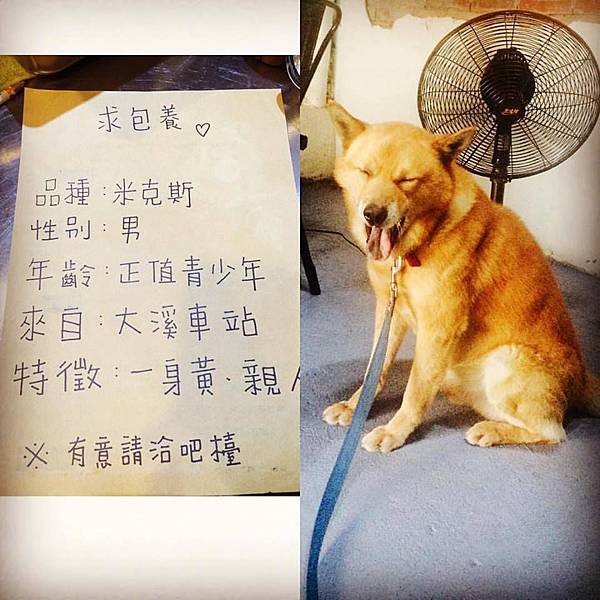 求包養♡
品種：米克斯
性别：男
年齡：正值青少年
來自：大溪車站
特徵：一身黃、親人
※ 有意請洽吧檯